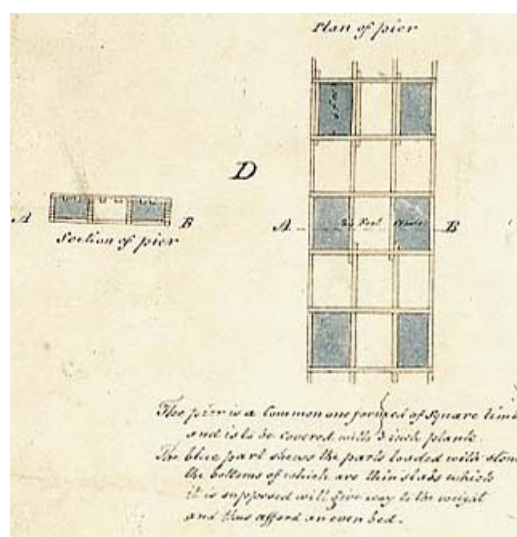 Plan of pier
D
A
B
Section of pier
A
Feet
B
The pier is a Common one formed of Square
and is to be covered with 3 inch plank.
The blue part shews the parts loaded with
the bottoms of which are thin slabs which
it is supposed will give way to the weight
and thus afford an even bed.